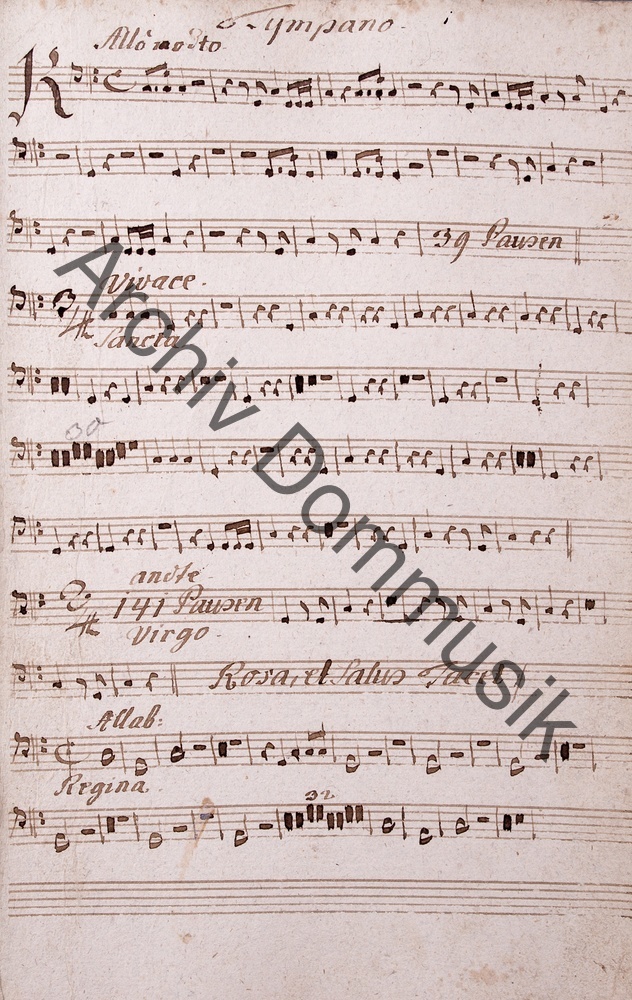 Tympano.
Allō modto.
K
39 Pausen
Vivace.
Sancta
30
andte
141 Pausen
Virgo.
Rosa, et Salus Tacet
Allab:
Regina.
32
Archiv Dommusik